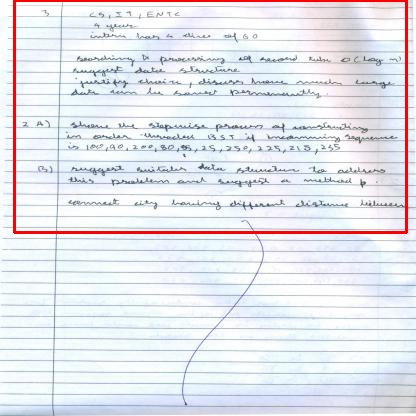 3 CS, IT, ENTC
4 year
intern has a dive of 60
searching & processing of record take O(log n)
suggest data structure
justify choice, discuss how much large
data can be saved permanently.
2 A) show the stepwise process of constructing
in order threaded BST if incomming sequence
is 100, 90, 200, 80, 85, 25, 250, 225, 215, 235
B) suggest suitable data structure to address
this problem and suggest a method
connect city having different distance between